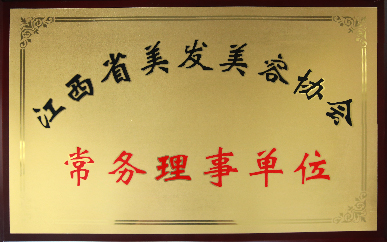 江西省美发美容协会
常务理事单位